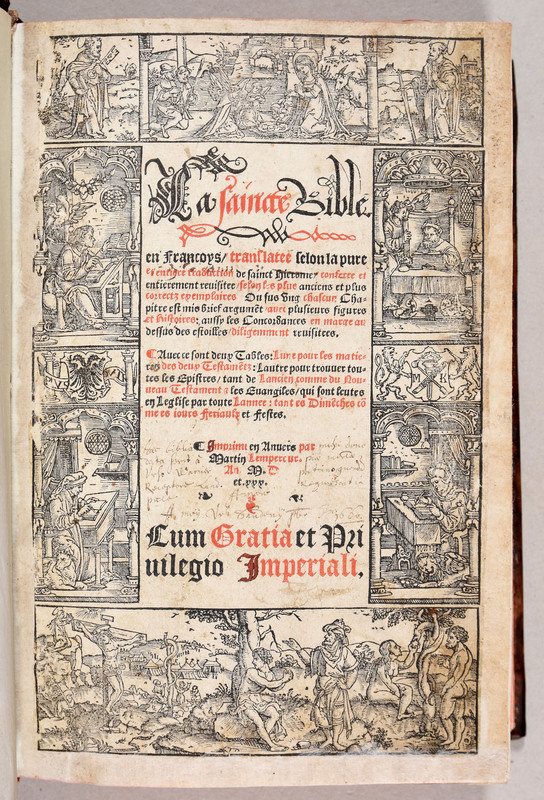 La saincte Bible.
en Francoys / translatee selon la pure
et entiere traduction de sainct Hierome / conferee et
entierement reuisitee / selon les plus anciens et plus
correctz exemplaires Ou sus ung chascun Cha-
pitre est mis brief argumēt / auec plusieurs figures
et histoires: aussy les Concordances en marge au
dessus des estoilles / diligemment reuisitees.
¶ Auec ce sont deux Tables: Lune pour les matie-
res des deux Testamētz: Lautre pour trouuer tou-
tes les Epistres / tant de Lancien comme du Nou-
ueau Testament et les Euangiles / qui sont leutes
en Leglise par toute Lannee: tant es Dimēches cō
me es iours Feriaulx et Festes.
¶ Imprime en Anuers par
Martin Lempereur.
An. M. D
et. xxx.
Cum Gratia et Pri
uilegio Imperiali.
M K